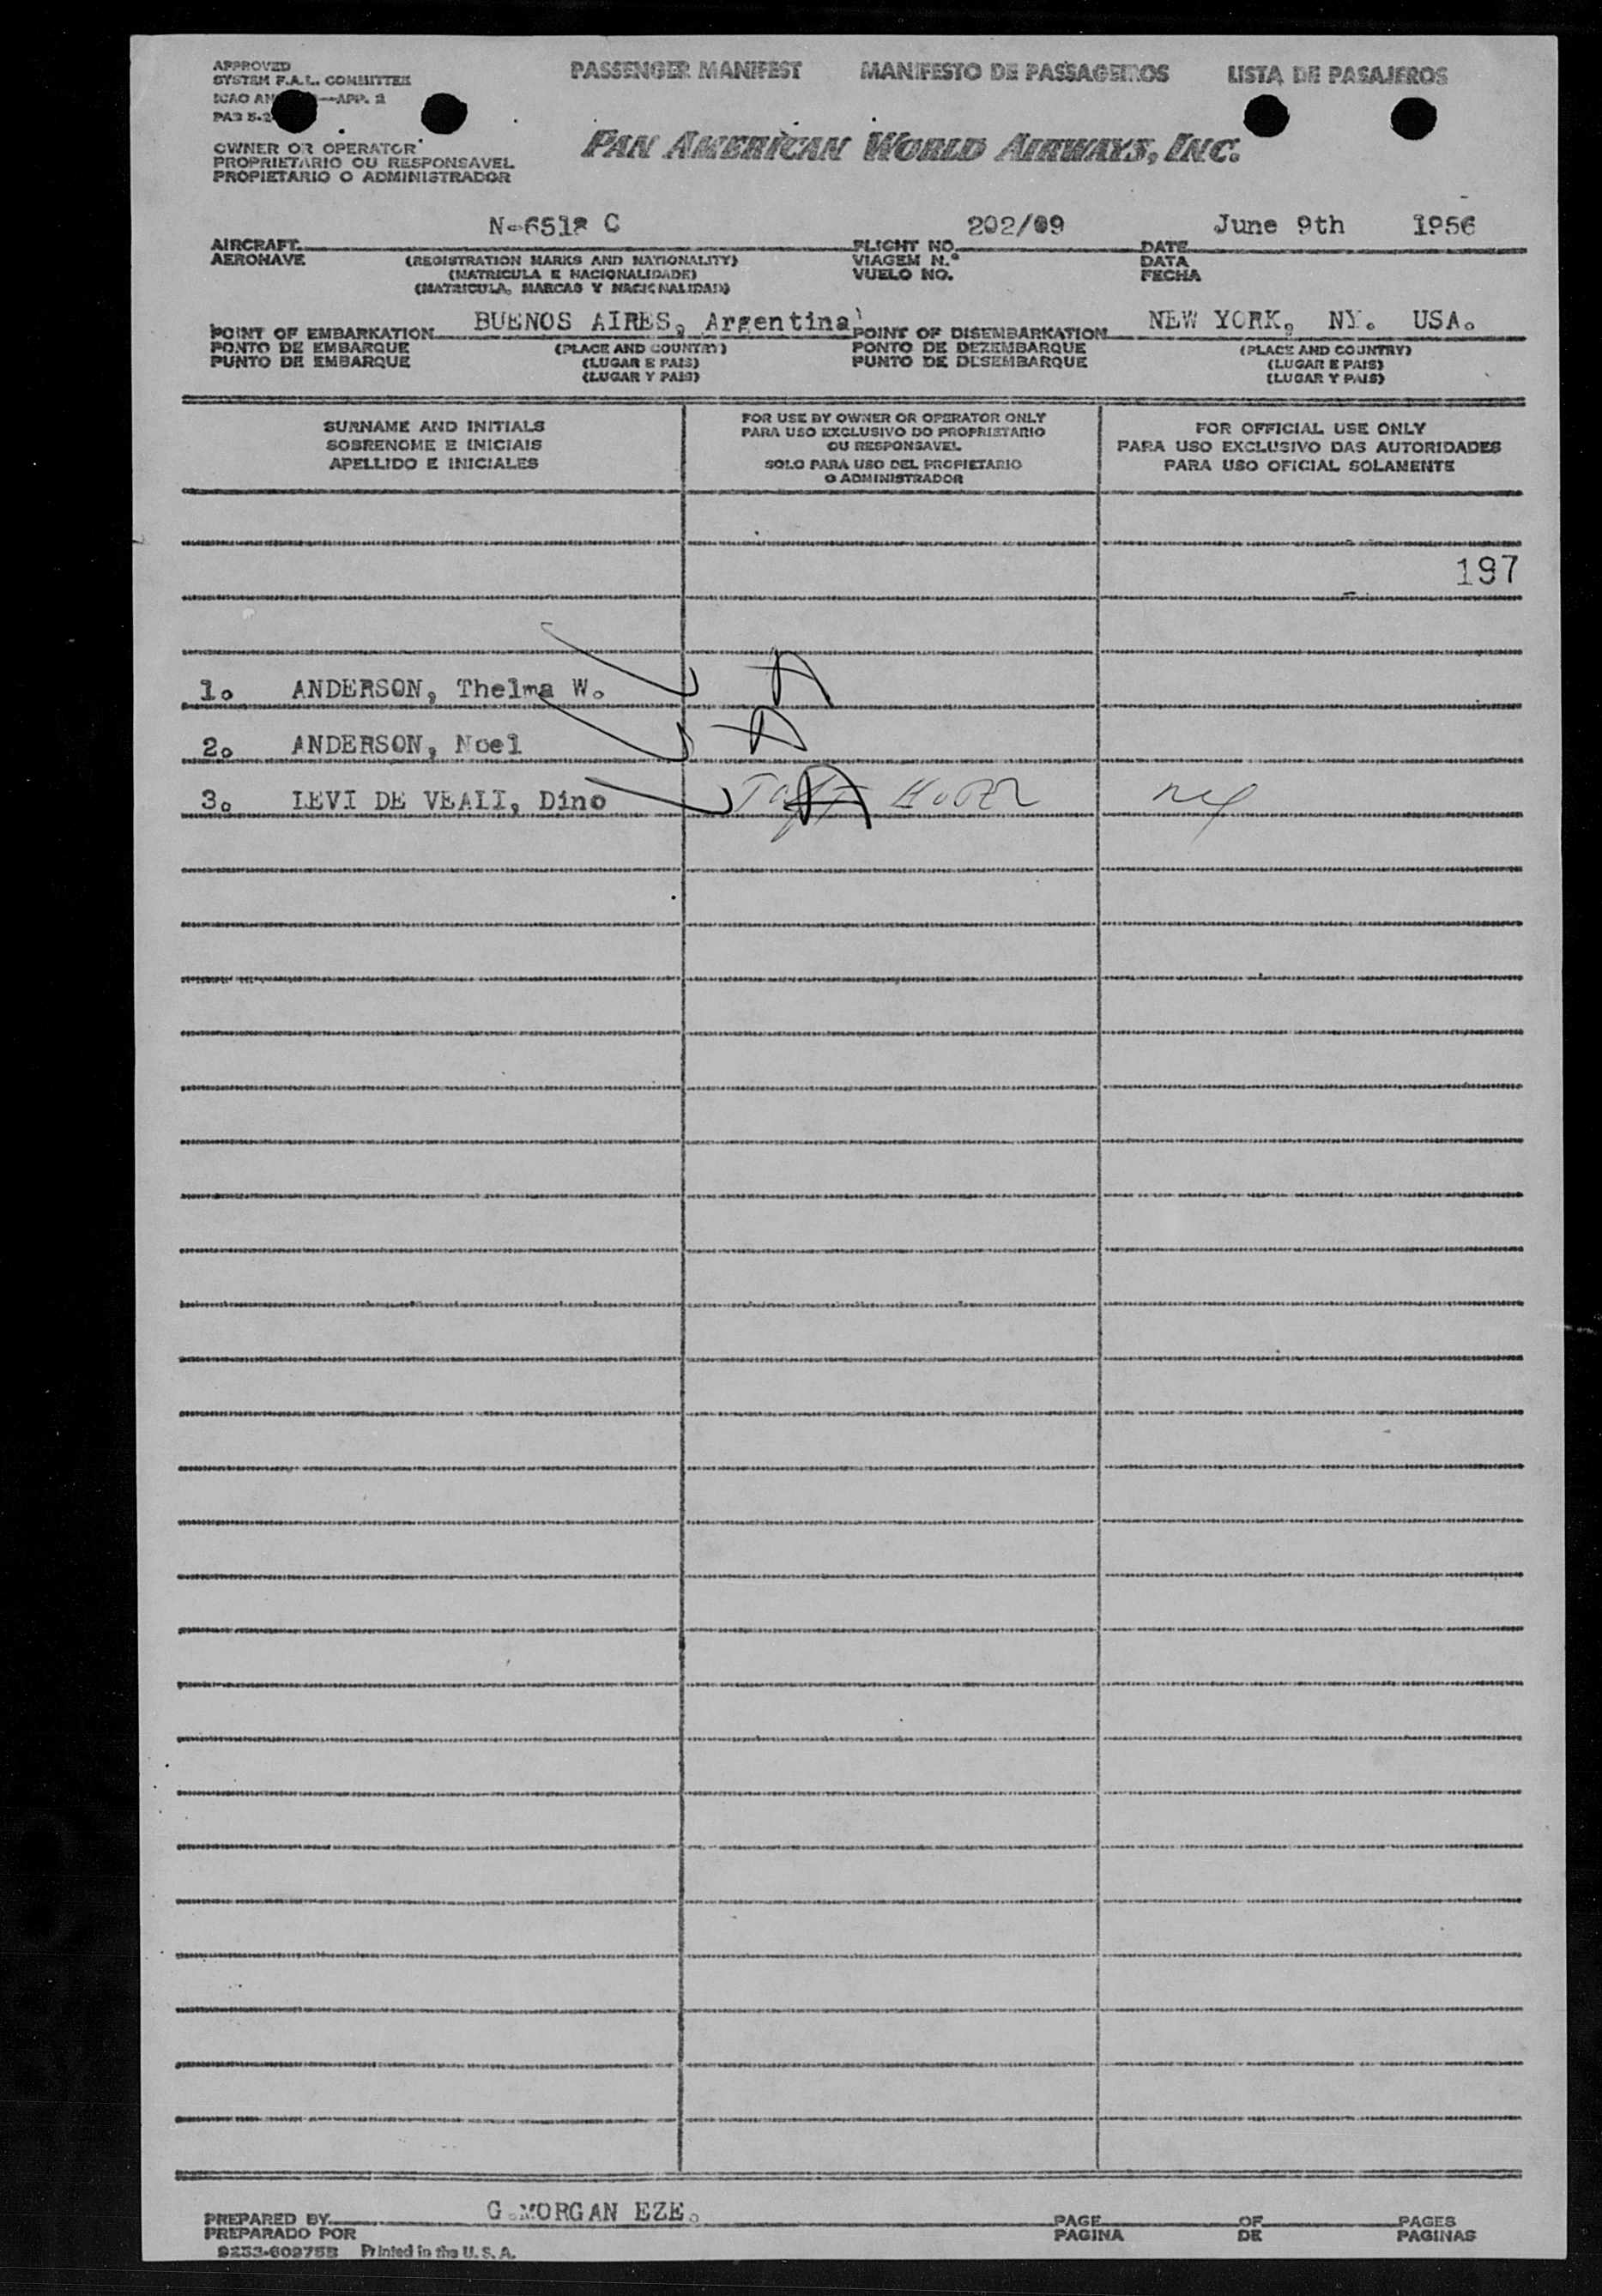 APPROVED
SYSTEM F.A.L. COMMITTEE
ICAO —APP. 2
PAB 5.2
PASSENGER MANIFEST MANIFESTO DE PASSAGEIROS LISTA DE PASAJEROS
PAN AMERICAN WORLD AIRWAYS, INC.
OWNER OR OPERATOR
PROPRIETARIO OU RESPONSAVEL
PROPIETARIO O ADMINISTRADOR
AIRCRAFT N-6518 C FLIGHT NO. 202/09 DATE June 9th 1956
AERONAVE (REGISTRATION MARKS AND NATIONALITY) VIAGEM N.º DATA
(MATRICULA E NACIONALIDADE) VUELO NO. FECHA
(MATRICULA, MARCAS Y NACIONALIDAD)
POINT OF EMBARKATION BUENOS AIRES, Argentina POINT OF DISEMBARKATION NEW YORK, NY. USA.
PONTO DE EMBARQUE (PLACE AND COUNTRY) PONTO DE DEZEMBARQUE (PLACE AND COUNTRY)
PUNTO DE EMBARQUE (LUGAR E PAIS) PUNTO DE DESEMBARQUE (LUGAR E PAIS)
(LUGAR Y PAIS) (LUGAR Y PAIS)
SURNAME AND INITIALS
SOBRENOME E INICIAIS
APELLIDO E INICIALES
FOR USE BY OWNER OR OPERATOR ONLY
PARA USO EXCLUSIVO DO PROPRIETARIO
OU RESPONSAVEL
SOLO PARA USO DEL PROPIETARIO
O ADMINISTRADOR
FOR OFFICIAL USE ONLY
PARA USO EXCLUSIVO DAS AUTORIDADES
PARA USO OFICIAL SOLAMENTE
197
1. ANDERSON, Thelma W.
2. ANDERSON, Noel
3. LEVI DE VEALI, Dino
PREPARED BY G.MORGAN EZE. PAGE OF PAGES
PREPARADO POR PAGINA DE PAGINAS
9233-60275B Printed in the U.S.A.